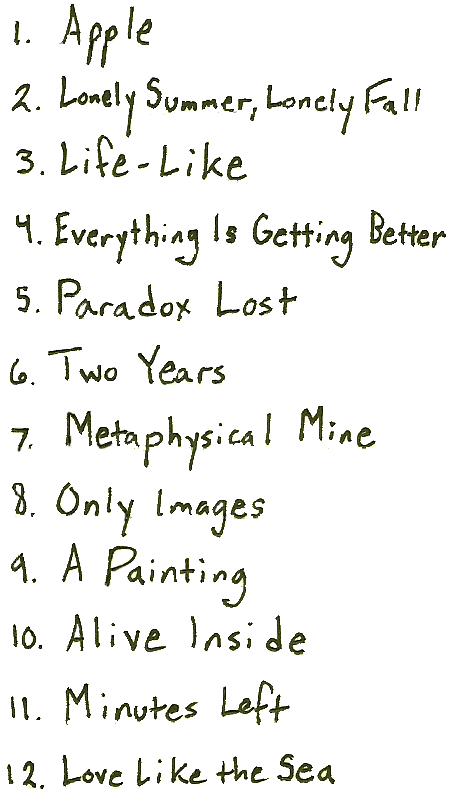 1. Apple
2. Lonely Summer, Lonely Fall
3. Life-Like
4. Everything Is Getting Better
5. Paradox Lost
6. Two Years
7. Metaphysical Mine
8. Only Images
9. A Painting
10. Alive Inside
11. Minutes Left
12. Love Like the Sea